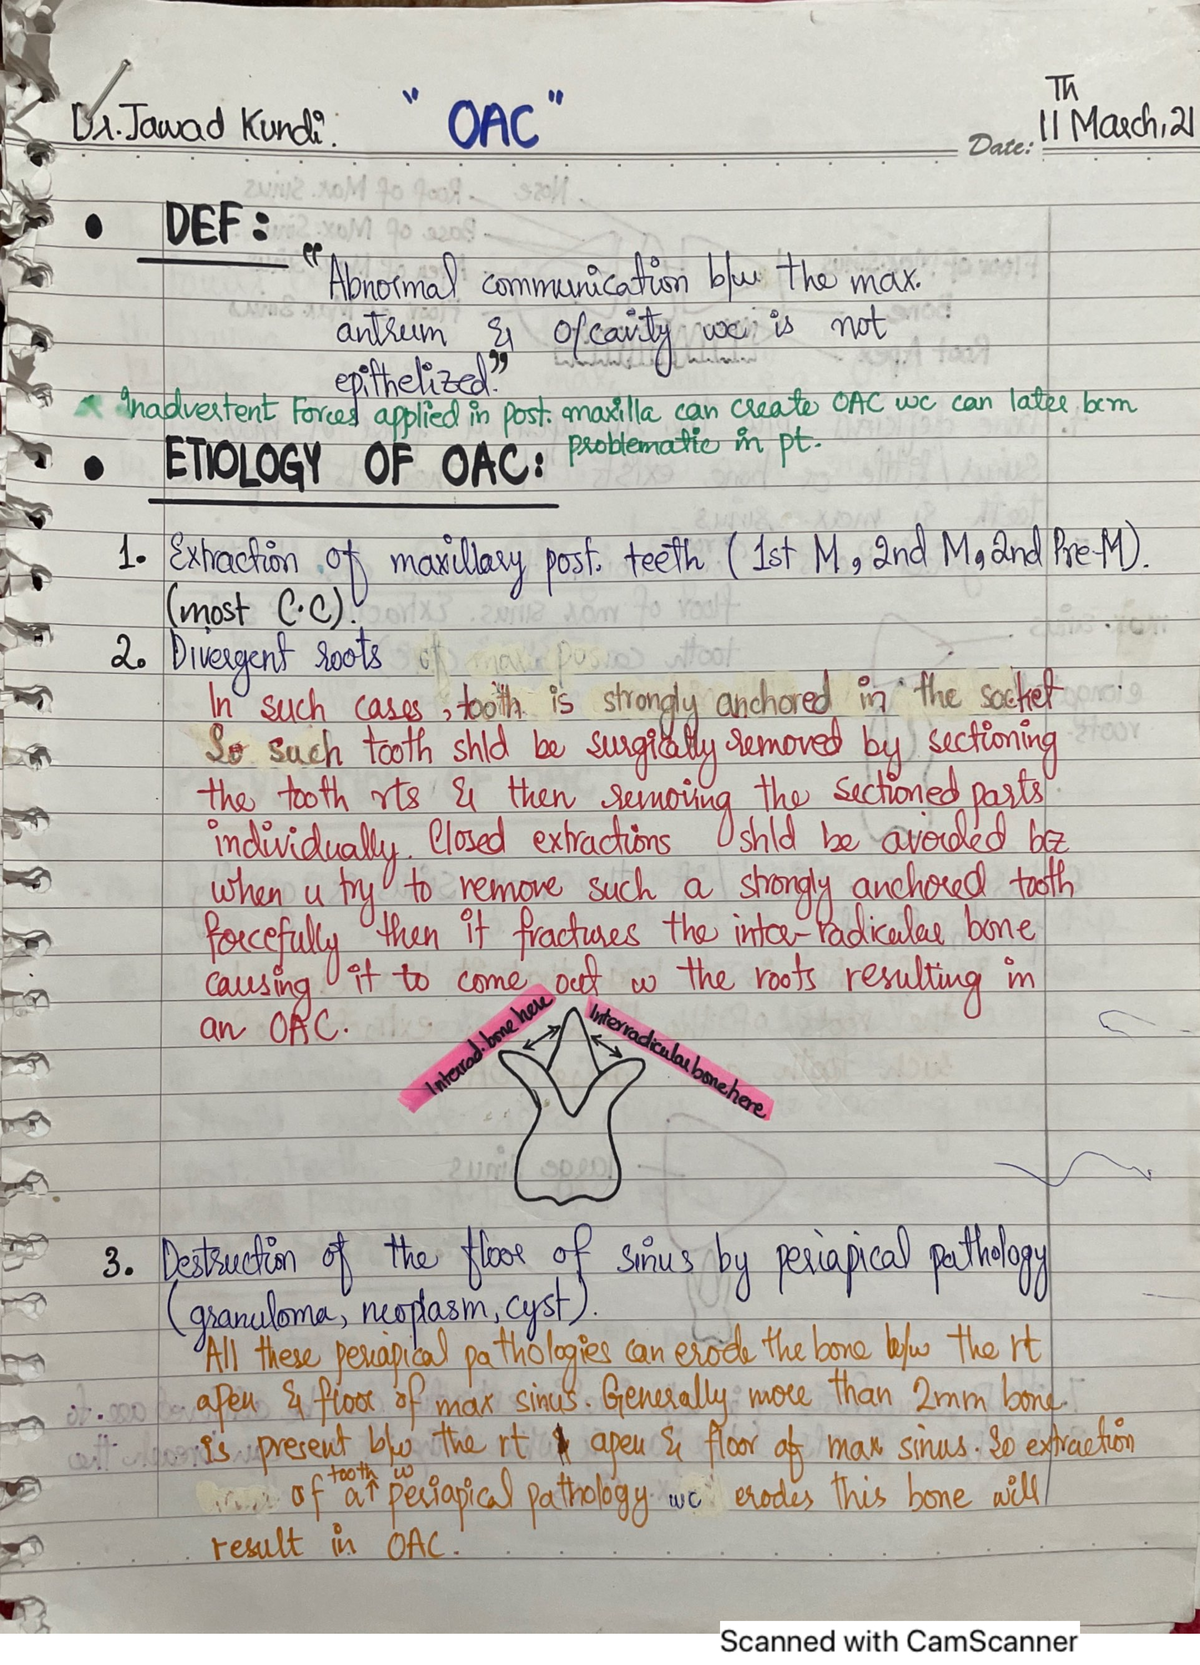 Dr. Jawad Kundi. "OAC" Th
Date: 11 March, 21
• DEF:
"Abnormal communication b/w the max.
antrum & o/cavity wc is not
epithelized."
Inadvertent Forces applied in post. maxilla can create OAC wc can later bcm
problematic in pt.
• ETIOLOGY OF OAC:
1. Extraction of maxillary post. teeth (1st M, 2nd M, 2nd Pre-M).
(most C.C).
2. Divergent roots
In such cases, tooth is strongly anchored in the socket
So such tooth shld be surgically removed by sectioning
the tooth rts & then removing the sectioned parts
individually. Closed extractions shld be avoided bcz
when u try to remove such a strongly anchored tooth
forcefully then it fractures the inter-radicular bone
causing it to come out w the roots resulting in
an OAC.
Interrad. bone here
Interradicular bone here
3. Destruction of the floor of sinus by periapical pathology
(granuloma, neoplasm, cyst).
All these periapical pathologies can erode the bone b/w the rt
apex & floor of max sinus. Generally more than 2mm bone
is present b/w the rt apex & floor of max sinus. So extraction
of a tooth w periapical pathology wc erodes this bone will
result in OAC.
Scanned with CamScanner